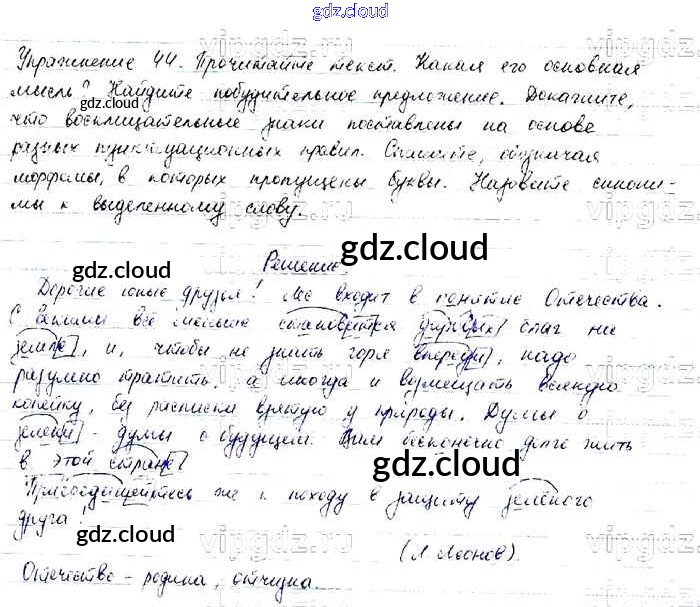 gdz.cloud
Упражнение 44. Прочитайте текст. Какая его основная
мысль? Найдите побудительное предложение. Докажите,
что восклицательные знаки поставлены на основе
разных пунктуационных правил. Спишите, обозначая
морфемы, в которых пропущены буквы. Назовите синони-
мы к выделенному слову.
Решение.
Дорогие юные друзья! Лес входит в понятие Отечества.
С годами всё меньше становится дарных благ на
земле, и, чтобы не знать горя впереди, надо
разумно тратить, а иногда и возмещать всякую
копейку, без расписки взятую у природы. Думы о
зелени - думы о будущем. Вам бесконечно долго жить
в этой стране
Присоединяйтесь же к походу в защиту зелёного
друга!
(Л. Леонов).
Отечество - родина, отчизна.